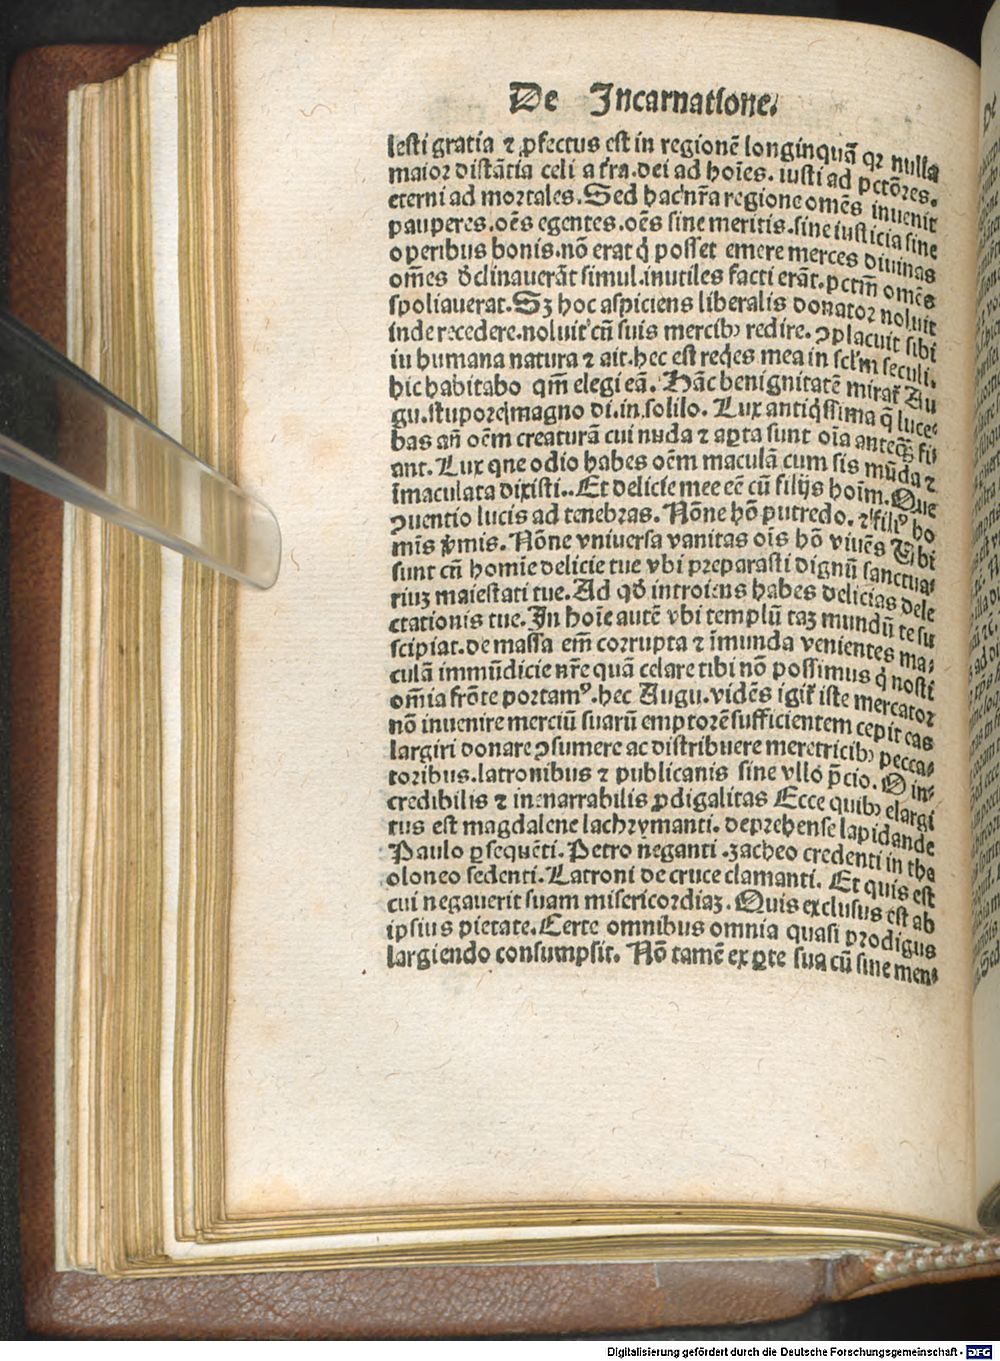 De Incarnatione.
lesti gratia ⁊ ꝓfectus est in regionē longinquā qꝛ nulla
maior distātia celi a t̄ra. dei ad hoīes. iusti ad pctōres.
eterni ad mortales. Sed hac nr̄a regione omēs inuenit
pauperes. oēs egentes. oēs sine meritis. sine iusticia sine
operibus bonis. nō erat q̇ posset emere merces diuinas
om̄es ꝺclinauerāt simul. inutiles facti erāt. pctm̄ omēs
spoliauerat. Sꝫ hoc aspiciens liberalis donator noluit
inde recedere. noluit cū suis mercibꝰ redire. ꝯplacuit sibi
in humana natura ⁊ ait. hec est req̇es mea in scl̄m seculi.
hic habitabo qm̄ elegi eā. Hāc benignitatē mirat̄ Au
gu. stupore magno di. in. solilo. Lux antiq̇ssima q̄ luce-
bas an̄ oēm creaturā cui nuda ⁊ aꝑta sunt oīa anteꝙ̄ fi
ant. Lux que odio habes oēm maculā cum sis mūda ⁊
īmaculata dixisti.. Et delicie mee eē cū filijs hoīm. Que
ꝯuentio lucis ad tenebras. Nōne hō putredo. ⁊ filiꝰ ho
mīs v̄mis. Nōne vniuersa vanitas oīs hō viuēs Tibi
sunt cū homīe delicie tue vbi preparasti dignū sanctua-
riuꝫ maiestati tue. Ad qd̄ introiens habes delicias dele
ctationis tue. In hoīe autē vbi templū taꝫ mundū te su
scipiat. de massa em̄ corrupta ⁊ īmunda venientes ma-
culā immūdicie nr̄e quā celare tibi nō possimus q̇ nosti
om̄ia frōte portamꝰ. hec Augu. vidēs igit̄ iste mercator
nō inuenire merciū suarū emptorē sufficientem cepit eas
largiri donare ꝯsumere ac distribuere meretricibꝰ pecca-
toribus. latronibus ⁊ publicanis sine vllo p̄cio. O in-
credibilis ⁊ inenarrabilis ꝓdigalitas Ecce quibꝰ elargi
tus est magdalene lachrymanti. deprehense lapidande
Paulo ꝑsequēti. Petro neganti. zacheo credenti in the
oloneo sedenti. Latroni de cruce clamanti. Et quis est
cui negauerit suam misericordiaꝫ. Quis exclusus est ab
ipsius pietate. Certe omnibus omnia quasi prodigus
largiendo consumpsit. Nō tamē ex ꝑte sua cū sine men-
Digitalisierung gefördert durch die Deutsche Forschungsgemeinschaft - DFG